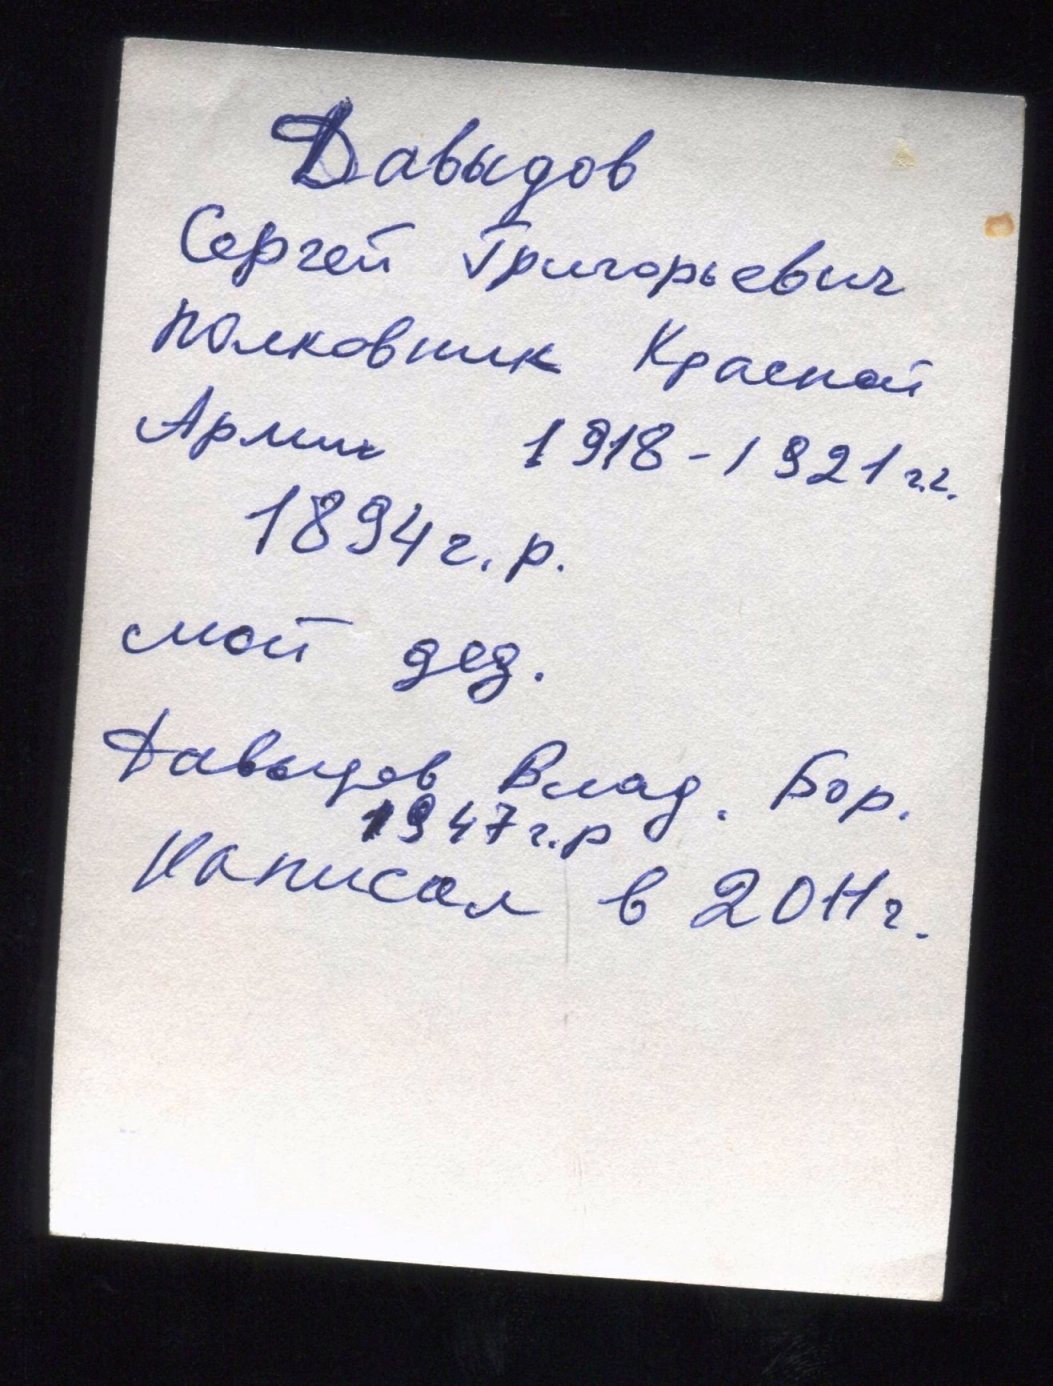 Давыдов
Сергей Григорьевич
полковник Красной
Армии 1918-1921 г.г.
1894 г. р.
мой дед.
Давыдов Влад. Бор.
1947 г.р
Написал в 2011 г.